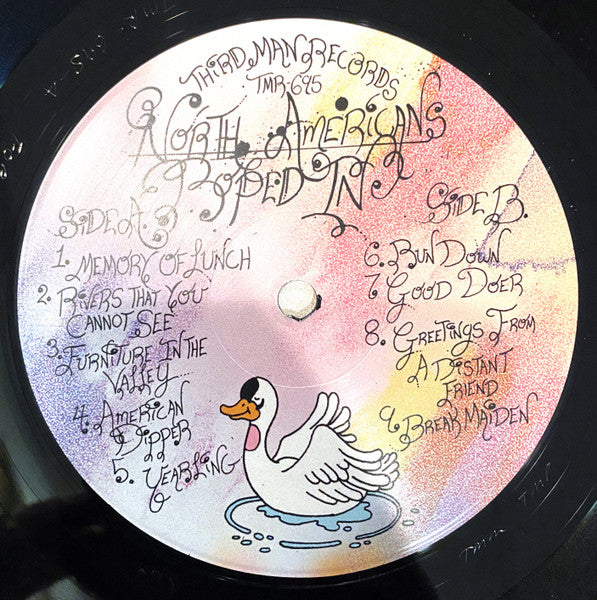 Third Man Records
TMR-695
North Americans
Roped In
Side A.
1. Memory of Lunch
2. Rivers That You
Cannot See
3. Furniture In The
Valley
4. American
Dipper
5. Yearling
Side B.
6. Run Down
7. Good Doer
8. Greetings From
A Distant
Friend
9. Break Maiden